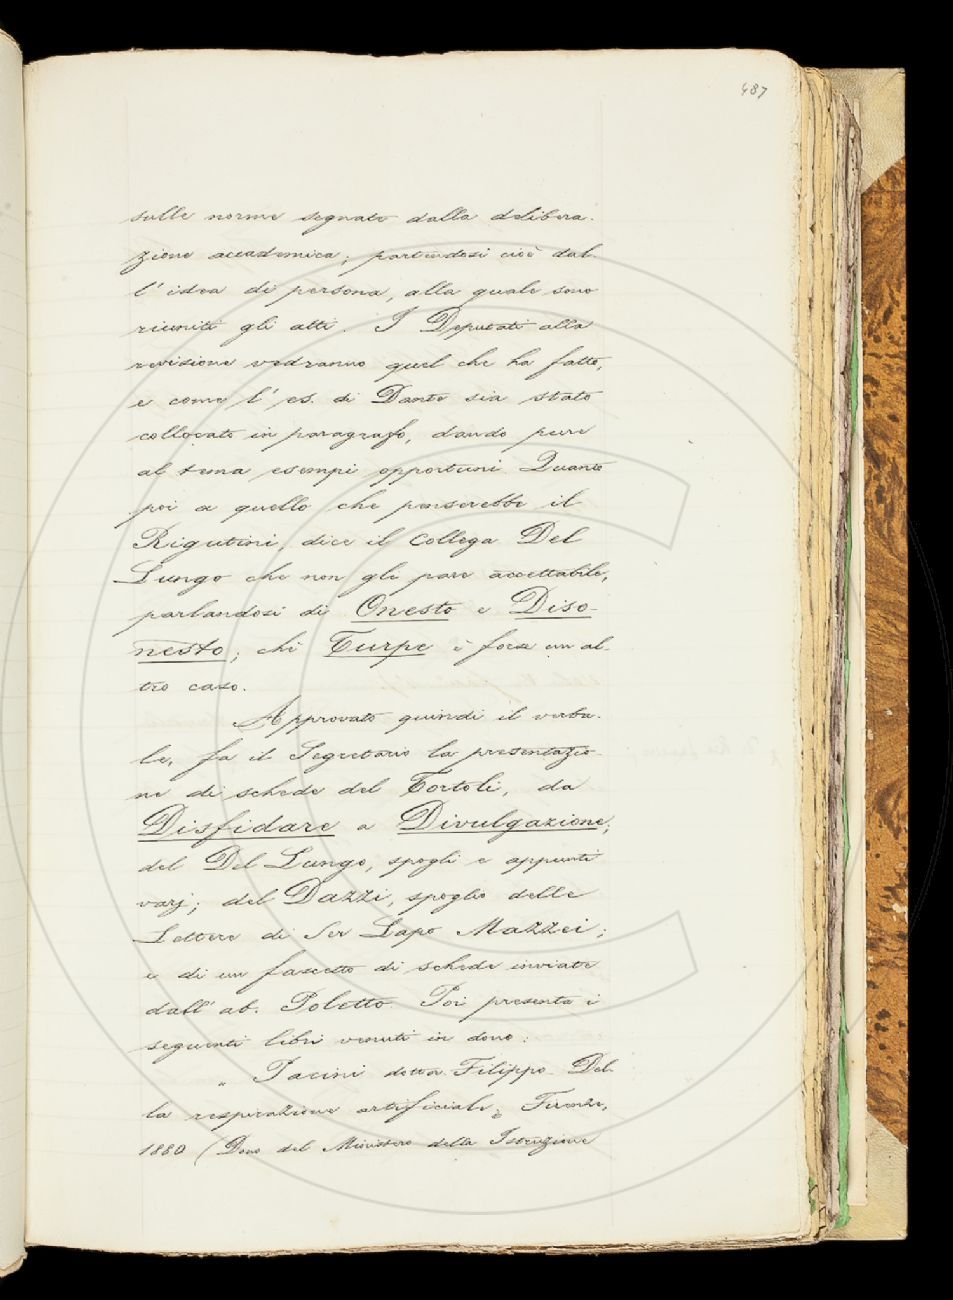 487
sulle norme segnate dalla delibera-
zione accademica; partendosi cioè dal-
l'idea di persona, alla quale sono
riuniti gli atti. I Deputati alla
revisione vedranno quel che ha fatto,
e come l'es. di Dante sia stato
collocato in paragrafo, dando pure
al tema esempi opportuni. Quanto
poi a quello che penserebbe il
Rigutini, dice il Collega Del
Lungo che non gli pare accettabile,
parlandosi di Onesto e Diso-
nesto; chè Turpe è forse un al-
tro caso.
Approvato quindi il verba-
le, fa il Segretario la presentazio-
ne di schede del Tortoli, da
Disfidare a Divulgazione;
del Del Lungo, spogli e appunti
varj; del Dazzi, spoglio delle
Lettere di Ser Lapo Mazzei;
e di un fascetto di schede inviate
dall'ab. Poletto. Poi presenta i
seguenti libri venuti in dono:
" Pacini dottor Filippo. Del-
la respirazione artificiale. Firenze,
1880 (Dono del Ministero della Istruzione